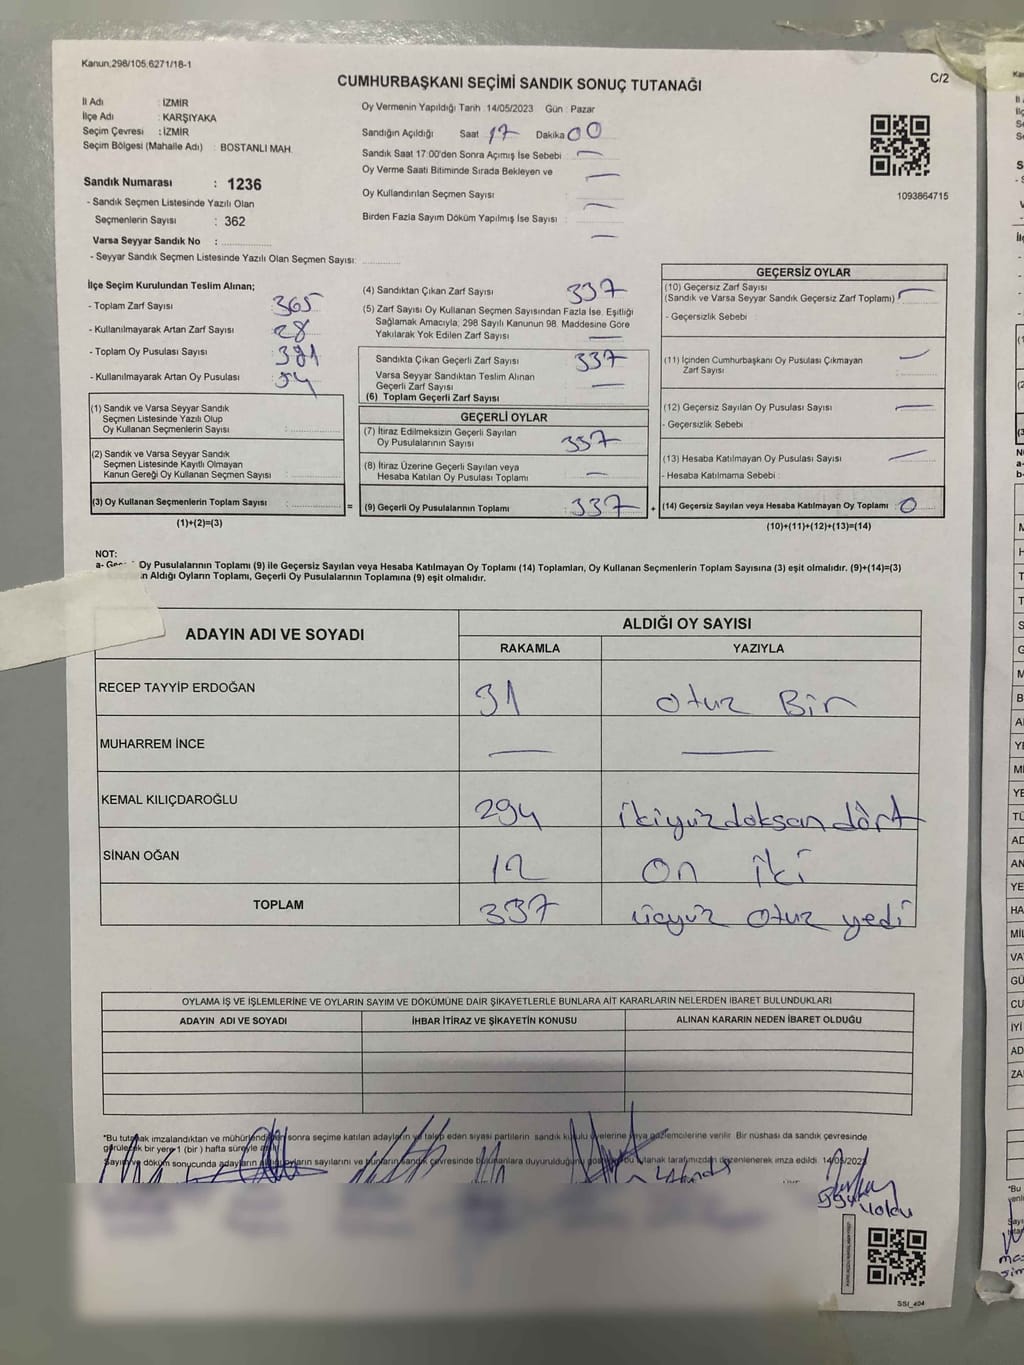 Kanun;298/105,6271/18-1
CUMHURBAŞKANI SEÇİMİ SANDIK SONUÇ TUTANAĞI
C/2
İl Adı : İZMİR
İlçe Adı : KARŞIYAKA
Seçim Çevresi : İZMİR
Seçim Bölgesi (Mahalle Adı) : BOSTANLI MAH.
Oy Vermenin Yapıldığı Tarih 14/05/2023 Gün : Pazar
Sandığın Açıldığı Saat 17 Dakika 00
Sandık Saat 17:00'den Sonra Açımış İse Sebebi —
Oy Verme Saati Bitiminde Sırada Bekleyen ve —
Oy Kullandırılan Seçmen Sayısı —
Birden Fazla Sayım Döküm Yapılmış İse Sayısı —
1093864715
Sandık Numarası : 1236
- Sandık Seçmen Listesinde Yazılı Olan
Seçmenlerin Sayısı : 362
Varsa Seyyar Sandık No :
- Seyyar Sandık Seçmen Listesinde Yazılı Olan Seçmen Sayısı:
İlçe Seçim Kurulundan Teslim Alınan;
- Toplam Zarf Sayısı 365
- Kullanılmayarak Artan Zarf Sayısı 28
- Toplam Oy Pusulası Sayısı
- Kullanılmayarak Artan Oy Pusulası
(1) Sandık ve Varsa Seyyar Sandık
Seçmen Listesinde Yazılı Olup
Oy Kullanan Seçmenlerin Sayısı :
(2) Sandık ve Varsa Seyyar Sandık
Seçmen Listesinde Kayıtlı Olmayan
Kanun Gereği Oy Kullanan Seçmen Sayısı :
(3) Oy Kullanan Seçmenlerin Toplam Sayısı : =
(1)+(2)=(3)
(4) Sandıktan Çıkan Zarf Sayısı 337
(5) Zarf Sayısı Oy Kullanan Seçmen Sayısından Fazla İse, Eşitliği
Sağlamak Amacıyla; 298 Sayılı Kanunun 98. Maddesine Göre
Yakılarak Yok Edilen Zarf Sayısı —
Sandıkta Çıkan Geçerli Zarf Sayısı 337
Varsa Seyyar Sandıktan Teslim Alınan
Geçerli Zarf Sayısı —
(6) Toplam Geçerli Zarf Sayısı
GEÇERLİ OYLAR
(7) İtiraz Edilmeksizin Geçerli Sayılan
Oy Pusulalarının Sayısı 337
(8) İtiraz Üzerine Geçerli Sayılan veya
Hesaba Katılan Oy Pusulası Toplamı —
(9) Geçerli Oy Pusulalarının Toplamı : 337 +
GEÇERSİZ OYLAR
(10) Geçersiz Zarf Sayısı —
(Sandık ve Varsa Seyyar Sandık Geçersiz Zarf Toplamı)
- Geçersizlik Sebebi :
(11) İçinden Cumhurbaşkanı Oy Pusulası Çıkmayan —
Zarf Sayısı
(12) Geçersiz Sayılan Oy Pusulası Sayısı —
- Geçersizlik Sebebi
(13) Hesaba Katılmayan Oy Pusulası Sayısı —
- Hesaba Katılmama Sebebi :
(14) Geçersiz Sayılan veya Hesaba Katılmayan Oy Toplamı : 0
(10)+(11)+(12)+(13)=(14)
NOT:
Oy Pusulalarının Toplamı (9) ile Geçersiz Sayılan veya Hesaba Katılmayan Oy Toplamı (14) Toplamları, Oy Kullanan Seçmenlerin Toplam Sayısına (3) eşit olmalıdır. (9)+(14)=(3)
Aldığı Oyların Toplamı, Geçerli Oy Pusulalarının Toplamına (9) eşit olmalıdır.
ADAYIN ADI VE SOYADI
ALDIĞI OY SAYISI
RAKAMLA YAZIYLA
RECEP TAYYİP ERDOĞAN 31 otuz Bir
MUHARREM İNCE — —
KEMAL KILIÇDAROĞLU 294 ikiyüzdoksan dört
SİNAN OĞAN 12 on iki
TOPLAM 337 üçyüz otuz yedi
OYLAMA İŞ VE İŞLEMLERİNE VE OYLARIN SAYIM VE DÖKÜMÜNE DAİR ŞİKAYETLERLE BUNLARA AİT KARARLARIN NELERDEN İBARET BULUNDUKLARI
ADAYIN ADI VE SOYADI İHBAR İTİRAZ VE ŞİKAYETİN KONUSU ALINAN KARARIN NEDEN İBARET OLDUĞU
*Bu tutanak imzalandıktan ve mühürlendikten sonra seçime katılan adayların ve talep eden siyasi partilerin sandık kurulu üyelerine veya gözlemcilerine verilir. Bir nüshası da sandık çevresinde
görülecek bir yere 1 (bir) hafta süreyle asılır.
Sayım ve döküm sonucunda adayların aldığı oyların sayılarını ve bunların sandık çevresinde bulunanlara duyurulduğunu gösteren bu tutanak tarafımızdan düzenlenerek imza edildi. 14/05/2023
SSI_404